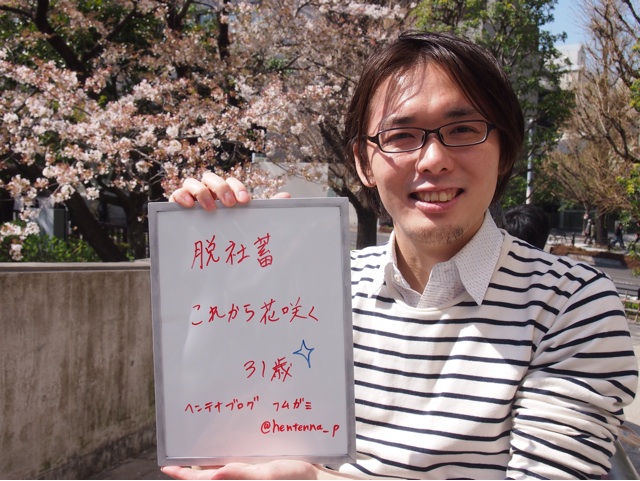 脱社蓄
これから花咲く
31歳
ヘンテナブログ フムガミ
@hentenna_p